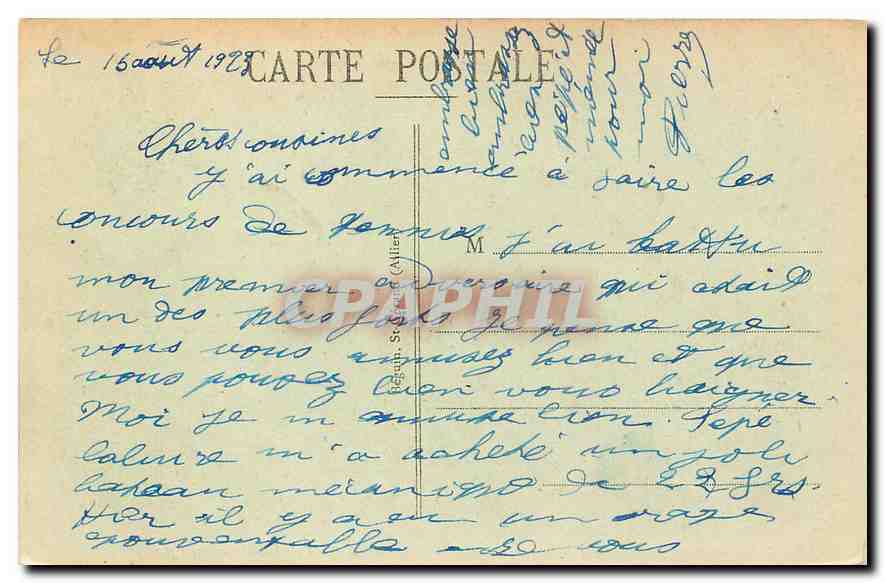 Le 16 août 1929
CARTE POSTALE
Chères cousines
J'ai commencé à faire les
concours de tennis j'ai battu
M
mon premier adversaire qui était
un des plus forts je pense que
vous vous amusez bien et que
vous pouvez bien vous baigner.
Moi je m amuse bien. Pépé
m'a acheté un joli
bateau mécanique de 22 frs.
Hier il y a eu un orage
épouvantable je vous
embrasse
bien
embrassez
pépé et
mémé
pour
moi
Pierre
Béguin, St (Allier)
CPAPHIL